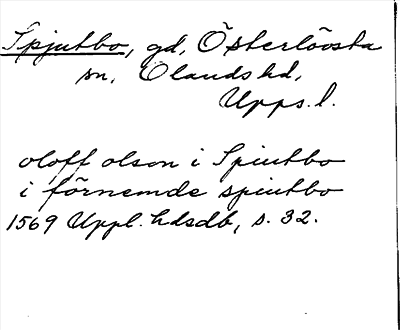 Spjutbo, gd, Österlövsta
sn, Olands hd,
Upps. l.
oloff olson i Spiutbo
i förnemde spiutbo
1569 Uppl. hdsdb, s. 32.